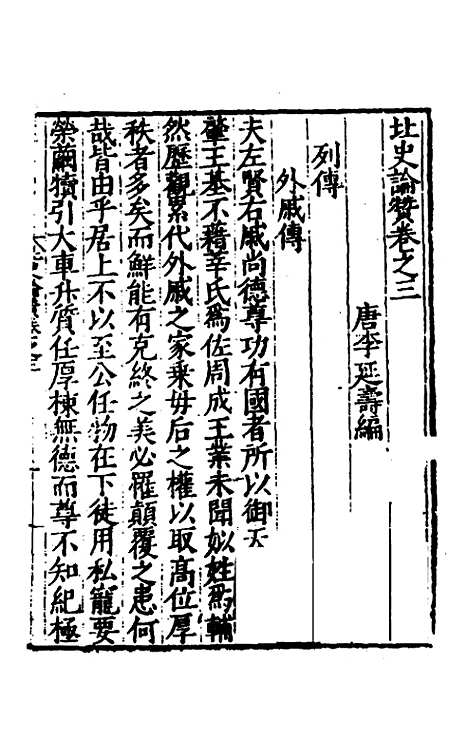 北史論贊卷之三
唐李延壽編
列傳
外戚傳
夫左賢右戚尚德尊功有國者所以御天
肇王基不藉莘氏爲佐周成王業未聞姒姓爲輔
然歷觀累代外戚之家乗毋后之權以取高位厚
秩者多矣而鮮能有克終之美必罹顛覆之患何
哉皆由乎居上不以至公任物在下徒用私寵要
榮繭犢引大車升質任厚棟無德而尊不知紀極